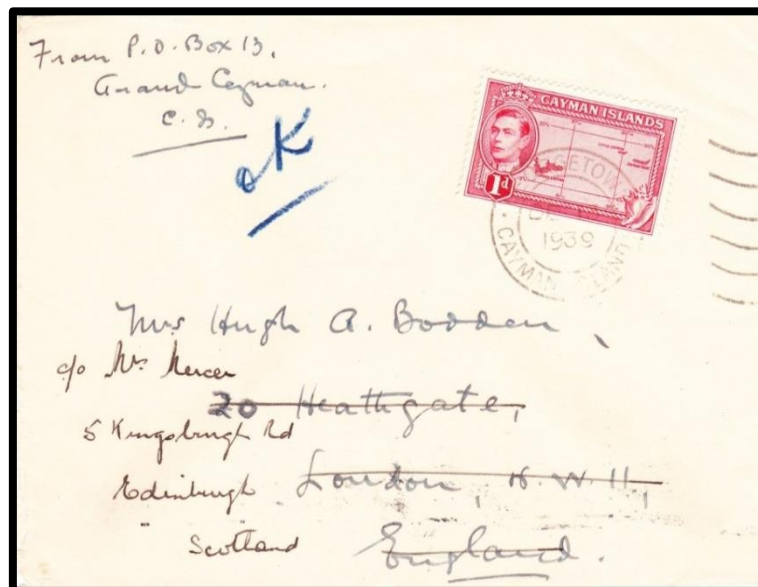 From P.O. Box 13,
Grand Cayman.
OK
CAYMAN ISLANDS
1d
1939
CAYMAN ISLAND
Mrs Hugh A. Bodden,
c/o Mrs Mercer
20 Heathgate,
5 Kingsburgh Rd
Edinburgh London, N.W.11,
Scotland England.